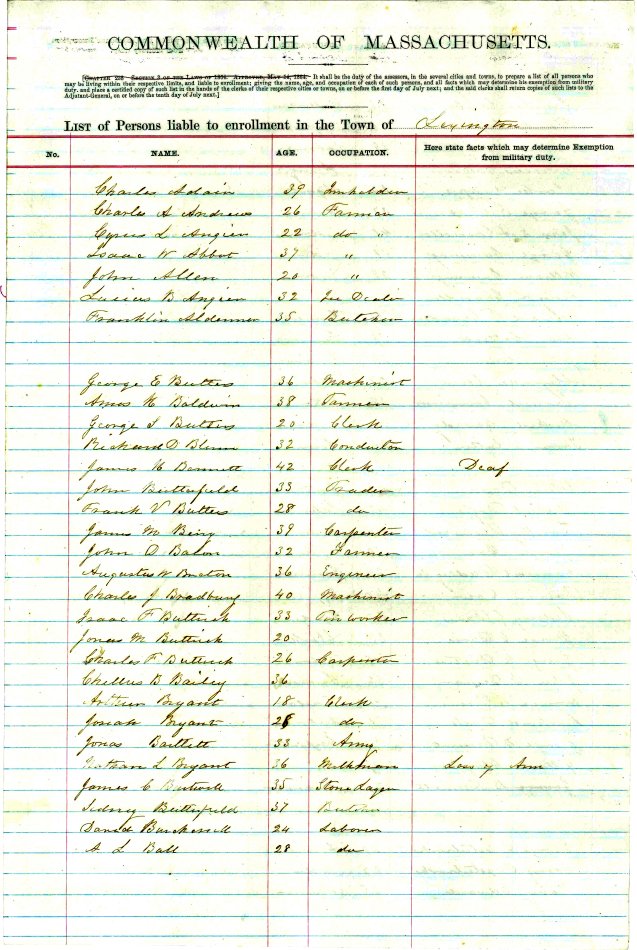 COMMONWEALTH OF MASSACHUSETTS.
[CHAPTER 238 — SECTION 3 OF THE LAWS OF 1864. APPROVED, MAY 14, 1864.— It shall be the duty of the assessors, in the several cities and towns, to prepare a list of all persons who
may be living within their respective limits, and liable to enrollment; giving the name, age, and occupation of each of such persons, and all facts which may determine his exemption from military
duty, and place a certified copy of such list in the hands of the clerks of their respective cities or towns, on or before the first day of July next; and the said clerks shall return copies of such lists to the
Adjutant-General, on or before the tenth day of July next.]
LIST OF PERSONS liable to enrollment in the Town of Lexington
No. NAME. AGE. OCCUPATION. Here state facts which may determine Exemption
from military duty.
Charles Adair 39 Innholder
Charles A Andrews 26 Farmer
Cyrus L Angier 22 do "
Isaac W Abbot 37 "
John Allen 20 "
Lucius B Angier 32 Ice Dealer
Franklin Alderman 35 Butcher
George E Butters 36 Machinist
Amos H Baldwin 38 Farmer
George S Butters 20 Clerk
Richard D Blinn 32 Conductor
James H Bennett 42 Clerk Deaf
John Butterfield 33 Trader
Frank V Butters 28 do
James M 39 Carpenter
John D Bacon 32 Farmer
Augustus W 36 Engineer
Charles J Bradbury 40 Machinist
Isaac F Buttrick 33 Tin Worker
Jonas M Buttrick 20
Charles F Buttrick 26 Carpenter
Chellus B Bailey 36
Arthur Bryant 18 Clerk
Josiah Bryant do
Jonas Bartlett 33 Army
Nathan L Bryant 36 Milkman Loss of Arm
James C 35 Stone Layer
Sidney Butterfield 37 Butcher
David 24 Laborer
A L Ball 28 do